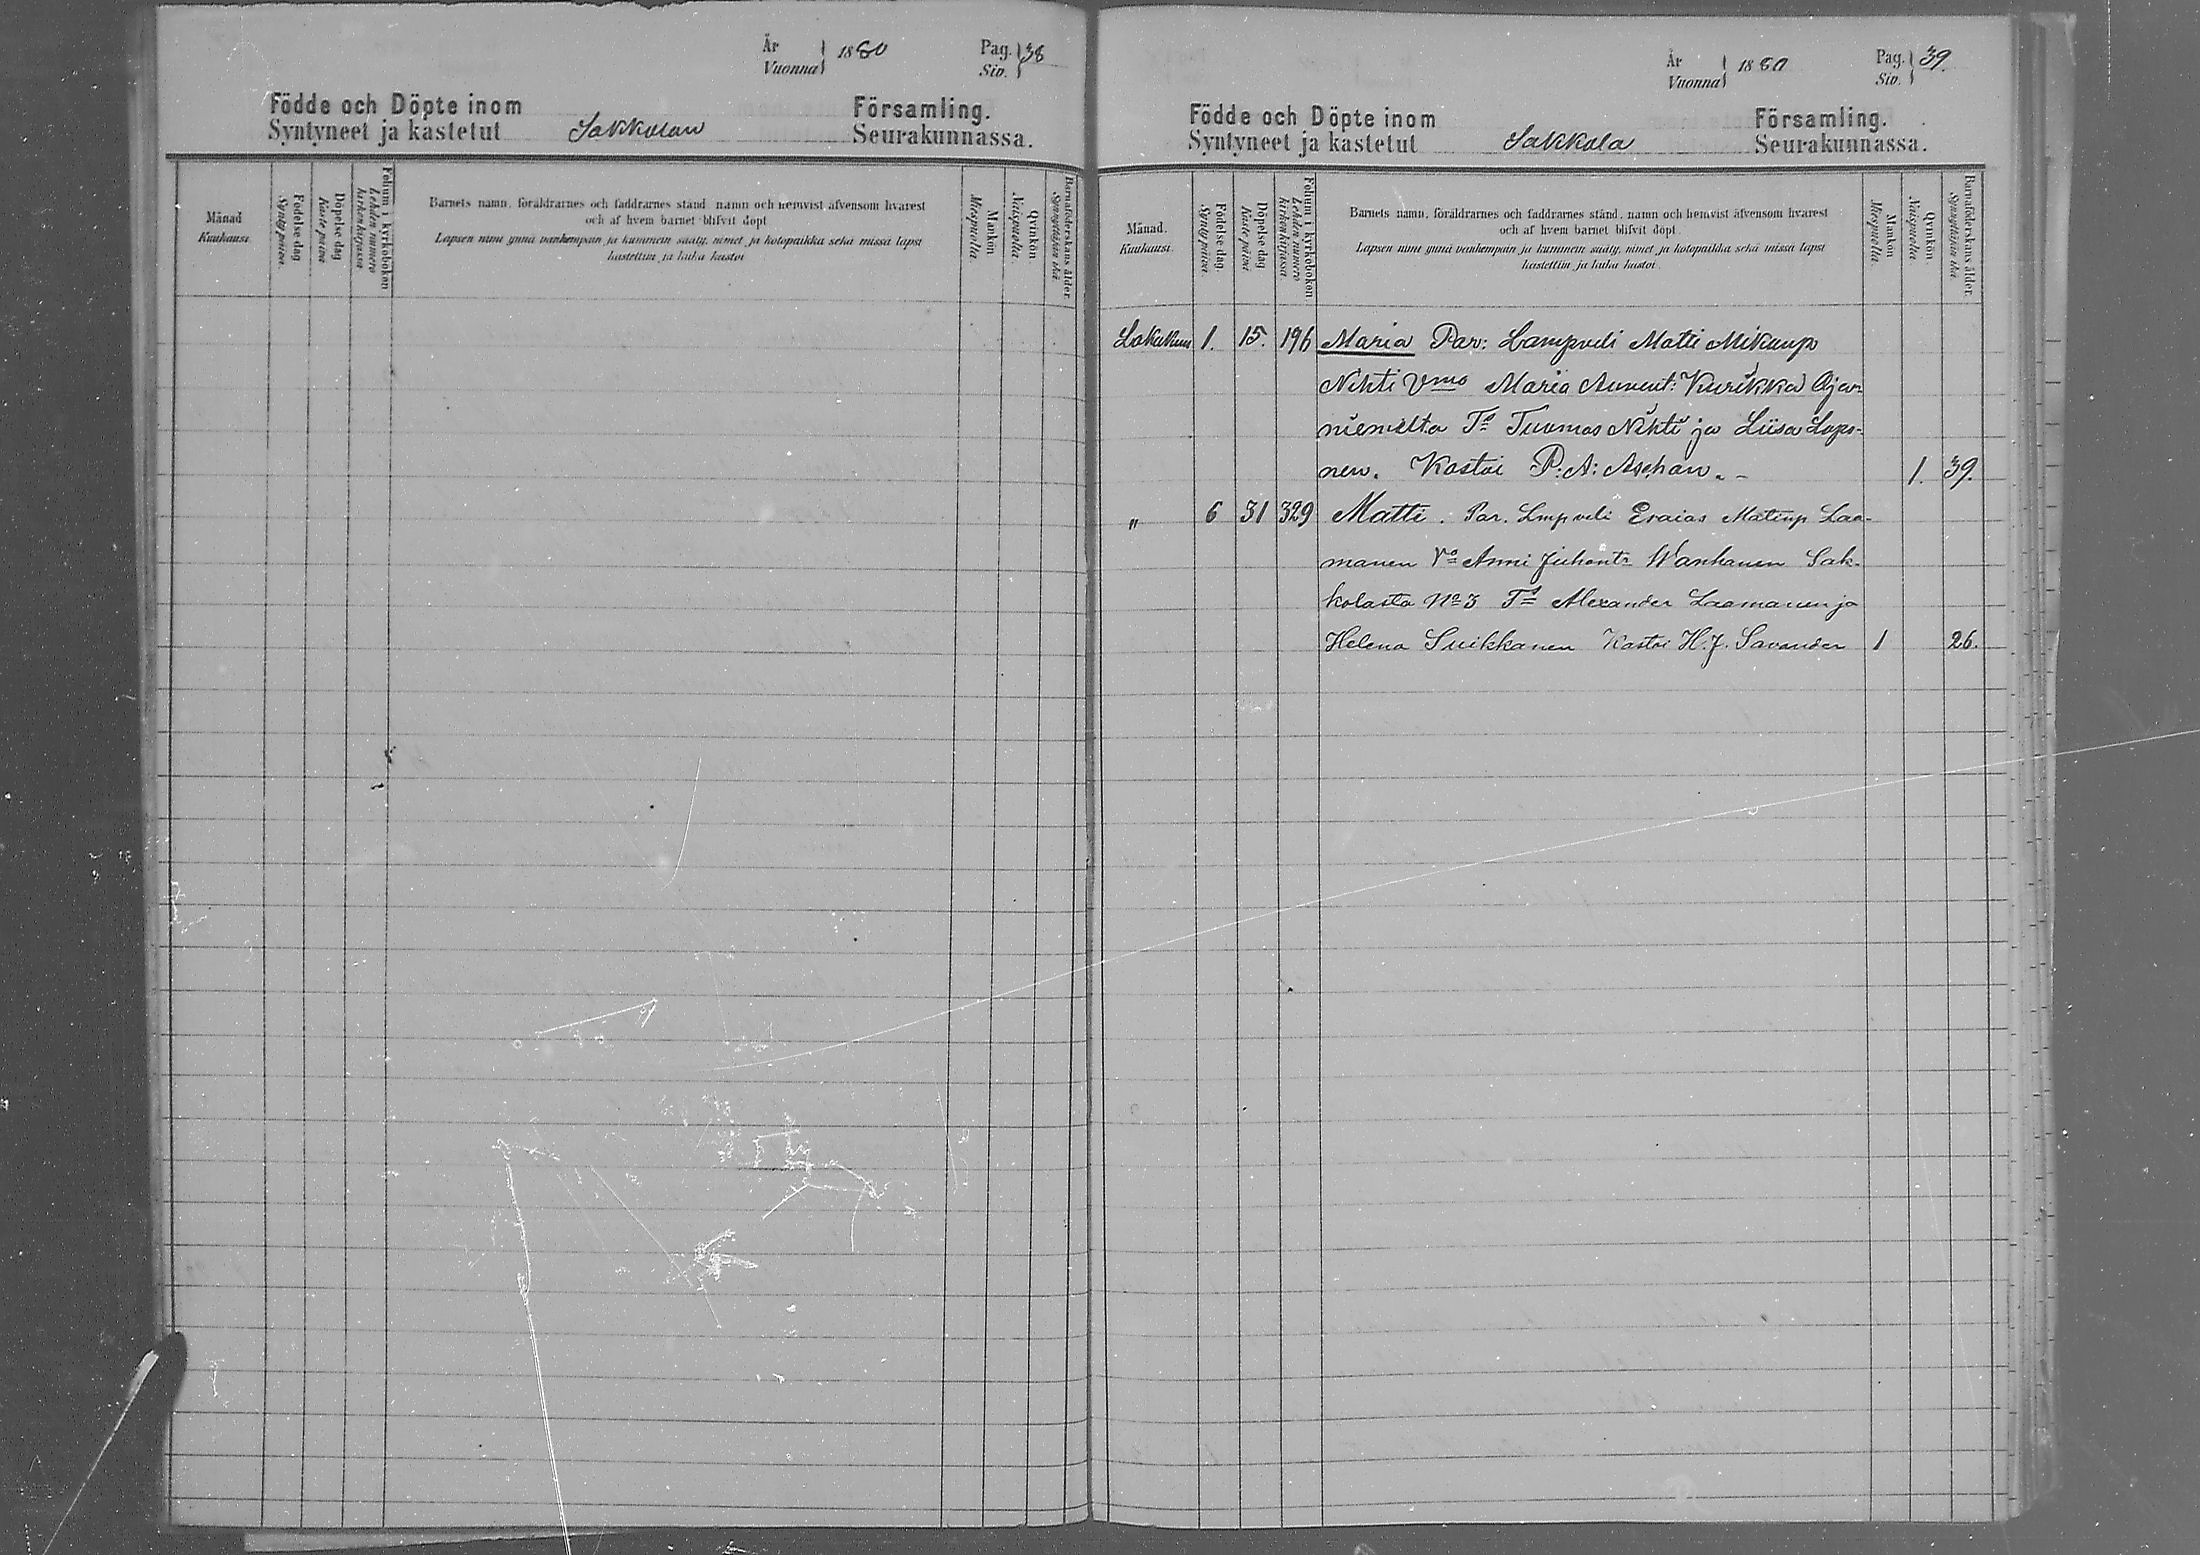 År
Vuonna
1880
Pag.
Siv.
38
Födde och Döpte inom
Församling.
Syntyneet ja kastetut
Sakkolan
Seurakunnassa.
Månad
Kuukausi.
Födelse dag
Synty päivä.
Döpelse dag
Kaste päivä
Folium i kyrkoboken
Lehden numero kirkonkirjassa
Barnets namn, föräldrarnes och faddrarnes stånd, namn och hemvist äfvensom hvarest
och af hvem barnet blifvit döpt
Lapsen nimi ynnä vanhempain ja kummein sääty, nimet ja kotopaikka sekä missä lapsi
kastettiin ja kuka kastoi
Mankön
Miespuolia.
Qvinkön
Naispuolia.
Barnaföderskans ålder.
Synnyttäjän ikä.
År
Vuonna
1880
Pag.
Siv.
39.
Födde och Döpte inom
Församling.
Syntyneet ja kastetut
Sakkola
Seurakunnassa.
Månad.
Kuukausi.
Födelse dag.
Synty päivä.
Döpelse dag
Kaste päivä.
Folium i kyrkoboken
Lehden numero kirkonkirjassa
Barnets namn, föräldrarnes och faddrarnes stånd, namn och hemvist äfvensom hvarest
och af hvem barnet blifvit döpt.
Lapsen nimi ynnä vanhempain ja kummein sääty, nimet ja kotopaikka sekä missä lapsi
kastettiin ja kuka kastoi.
Mankön
Miespuolia.
Qvinkön.
Naispuolia.
Barnaföderskans ålder.
Synnyttäjän ikä.
Lokakuu 1. 15. 196 Maria Par: Lampveli Matti Mikaup
Nihti Vmo Maria Kurikka Oja-
niemeltä Td Tuomas Nihti ja Liisa Lapo-
nen. Kastoi P: A: Aschan. - 1. 39.
" 6 31 329 Matti. Par. Lmpveli Esaias Matinp Laa-
manen Vo Anni Juhont: Wanhanen Sak-
kolasta No 3 Td Alexander Laamanen ja
Helena Suikkanen Kastoi H. J. Savander 1 26.